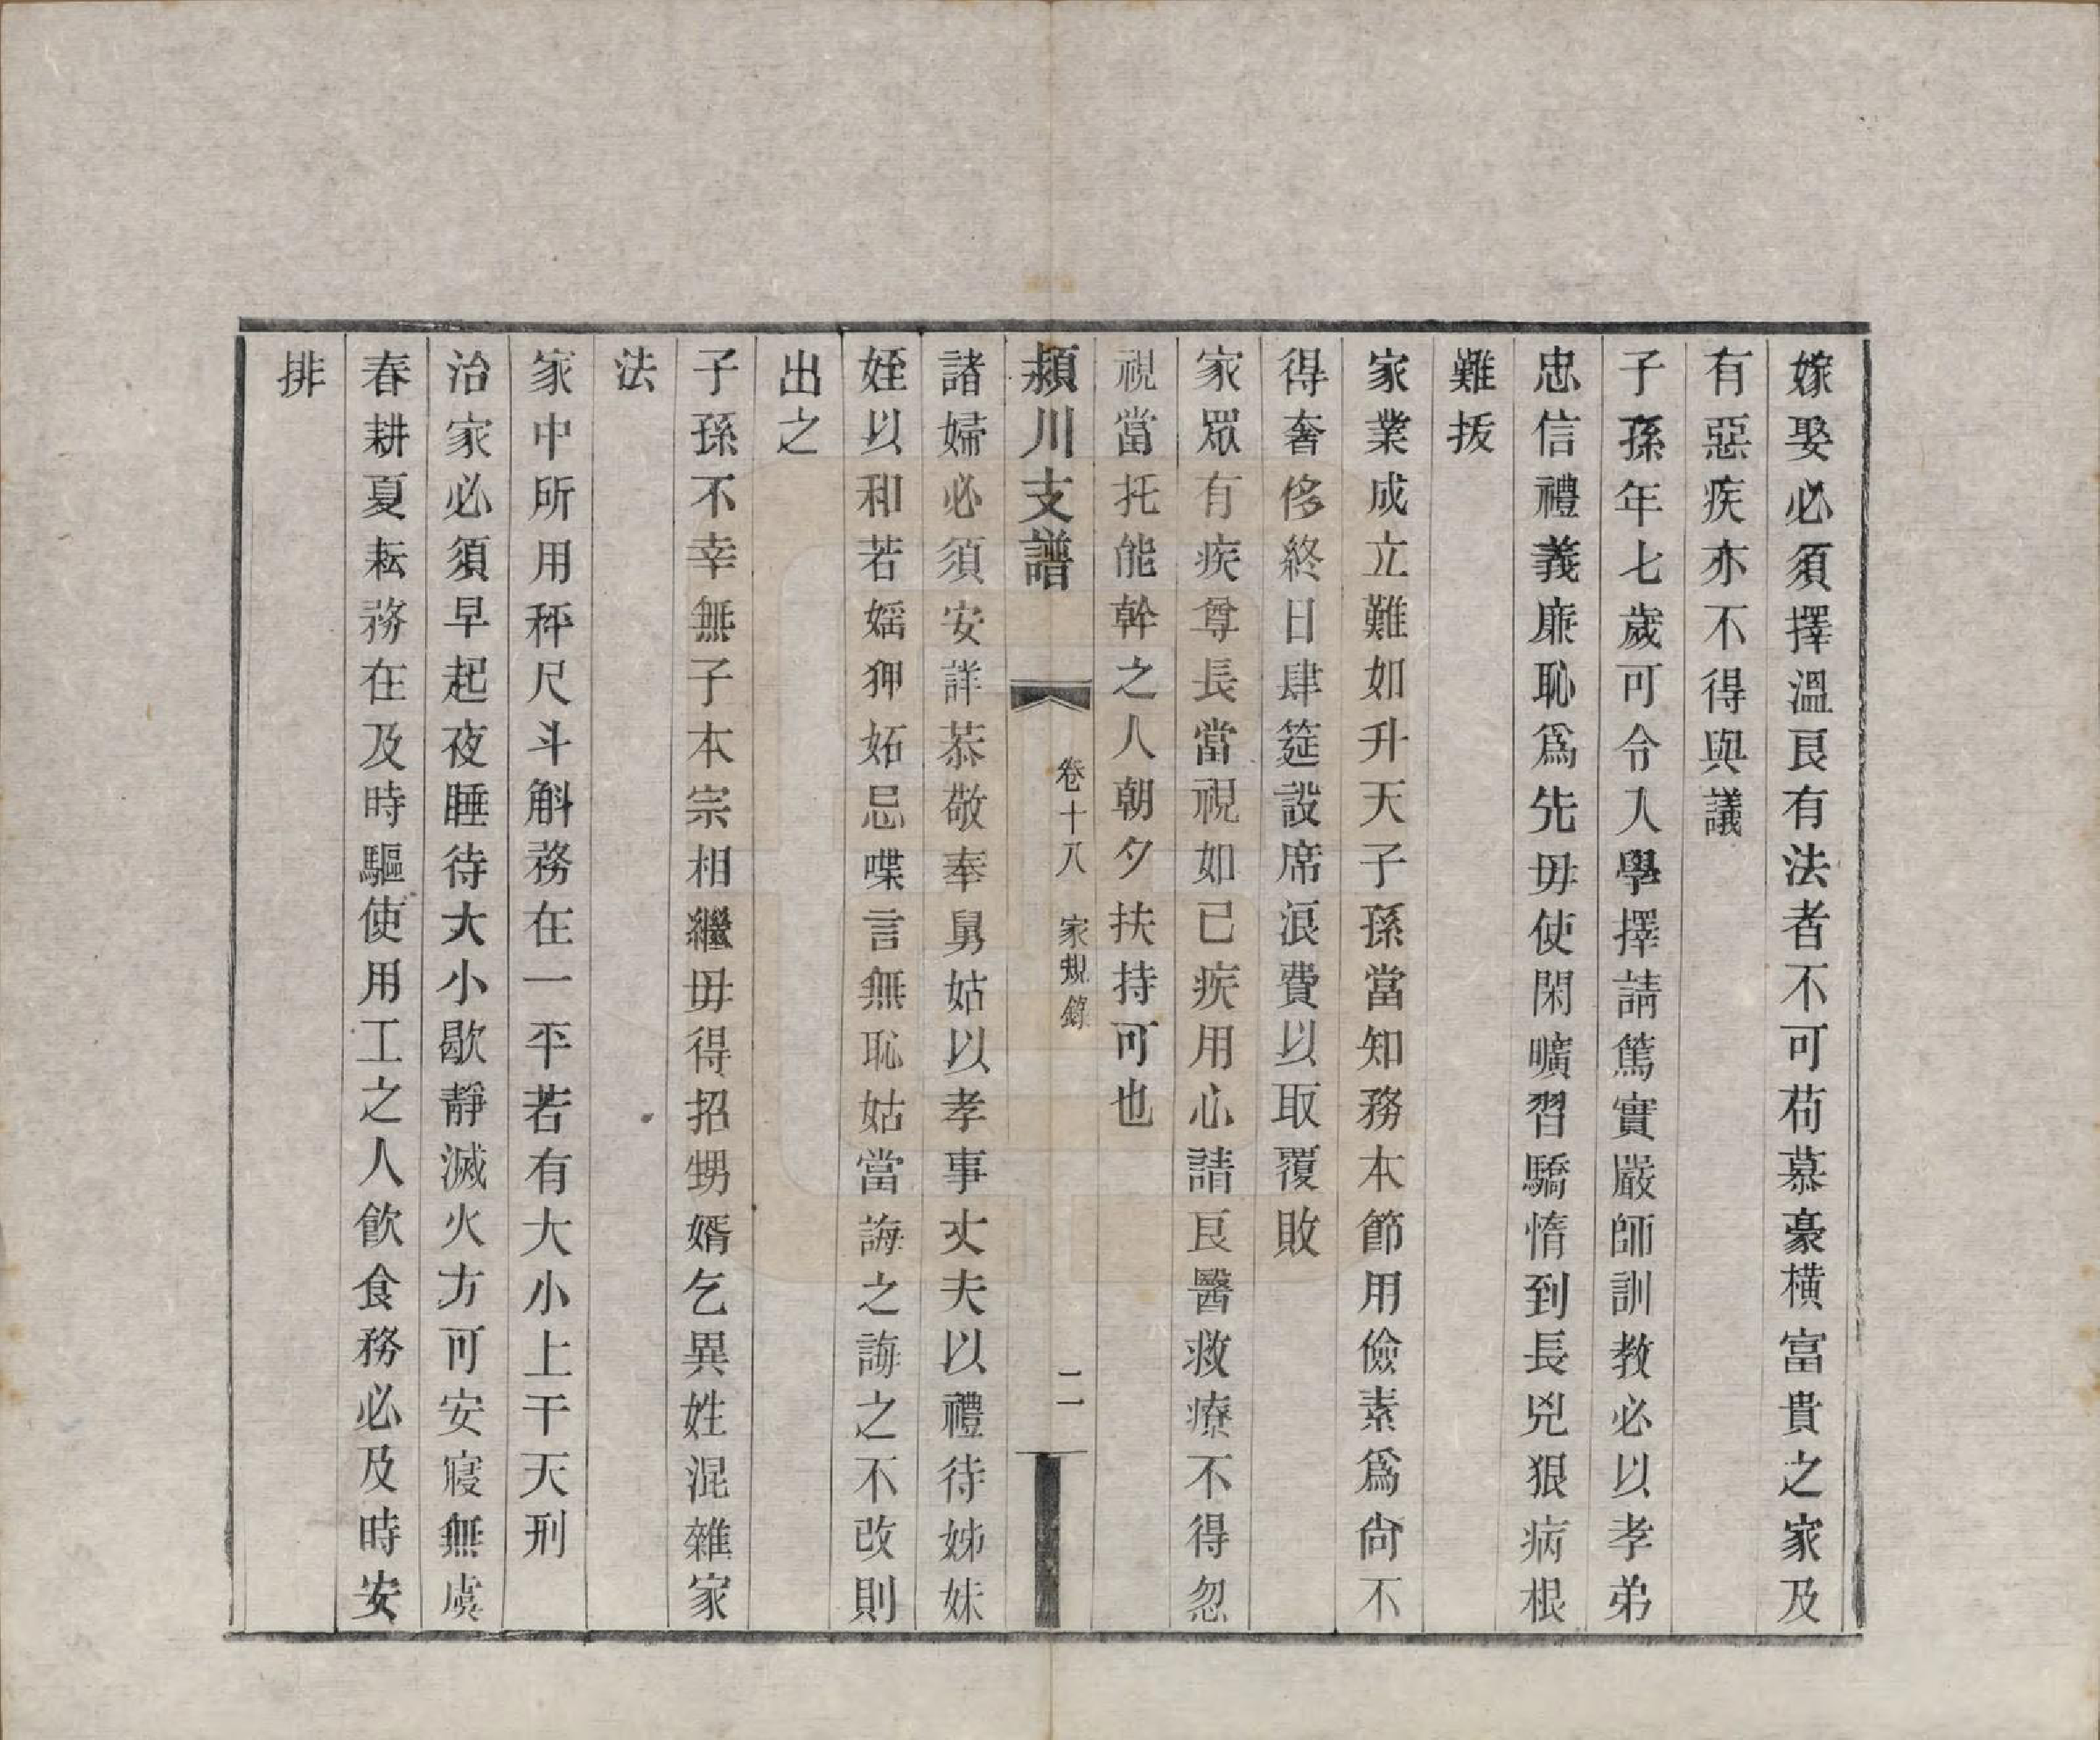 嫁娶必須擇溫良有法者不可苟慕豪橫富貴之家及
有惡疾亦不得與議
子孫年七歲可令入學擇請篤實嚴師訓教必以孝弟
忠信禮義廉恥爲先毋使閑曠習驕惰到長兇狠病根
難拔
家業成立難如升天子孫當知務本節用儉素爲尙不
得奢侈終日肆筵設席浪費以取覆敗
家眾有疾尊長當視如已疾用心請良醫救療不得忽
視當托能幹之人朝夕扶持可也
潁川支譜
卷十八
家規錄
二
諸婦必須安詳恭敬奉舅姑以孝事丈夫以禮待姊妹
姪以和若婬狎妬忌喋言無恥姑當誨之誨之不改則
出之
子孫不幸無子本宗相繼毋得招甥婿乞異姓混雜家
法
家中所用秤尺斗斛務在一平若有大小上干天刑
治家必須早起夜睡待大小歇靜滅火方可安寢無虞
春耕夏耘務在及時驅使用工之人飲食務必及時安
排